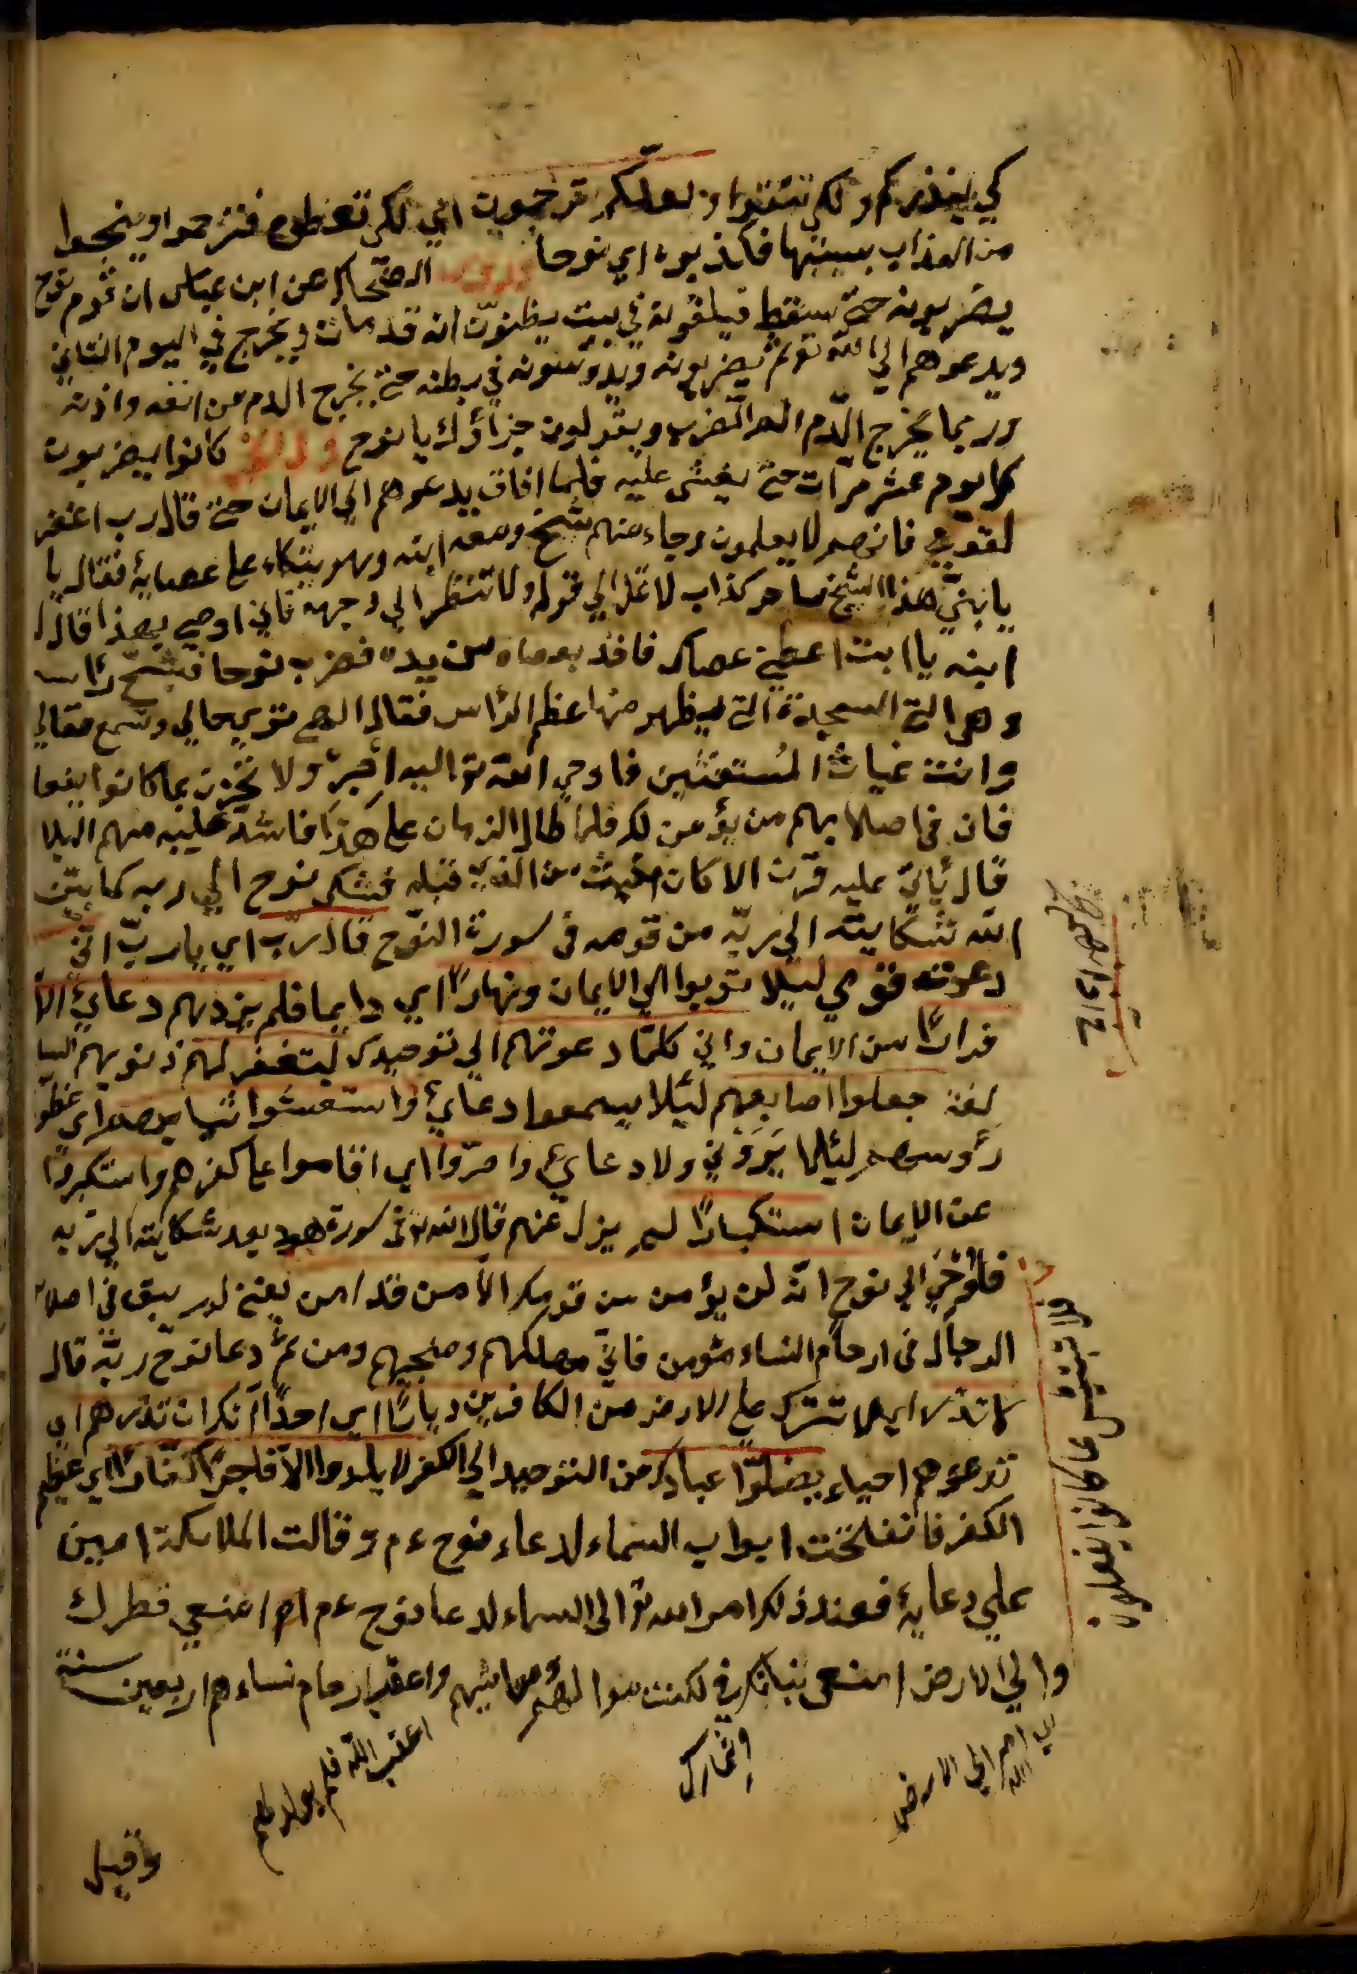 كي ينذركم ولكي تتقوا ولعلكم ترحمون اي لكي تعظون فترحموا وينجوا
من العذاب بسببها فكذبوه اي نوحا الضحاك عن ابن عباس ان قوم نوح
يضربونه حتى يسقط فيلقونه في بيت يظنون انه قد مات ويخرج في اليوم الثاني
ويدعوهم الي الله تع ثم يضربونه ويدوسونه في بطنه حتى يخرج الدم من انفه واذنه
وربما يخرج الدم الضرب ويقولون جزاؤك يا نوح كانوا يضربون
كل يوم عشر مرات حتى يغشى عليه فلما افاق يدعوهم الي الايمان حتى قال رب اغفر
لقومي فانهم لا يعلمون وجاء منهم شيخ ومعه ابنه وهو يتكاء على عصايه فقال يا
يا بني هذا الشيخ ساحر كذاب لا الي قوله ولا تنظر الي وجهه فاني اوصي بهذا قال
ابنه يا ابت اعطني عصاك فاخذ بعصاه من يده فضرب نوحا فشج راسه
وهو التي يظهر منها عظم الراس فقال الهي ترى حالي وتسمع مقالي
وانت غياث المستغثين فاوحى الله تع اليه ولا تحزن بما كانوا يفعلوا
فان في اصلابهم من يؤمن لك فلما طال الزمان على هذا فاشد عليه منهم البلا
قال يأتي عليه قرن الا كان اخبث من الذي قبله فشكى نوح الي ربه كما بين
الله شكايته الي ربه من قومه في سورة النوح قال رب اي يا رب اني
دعوت قومي ليلا توبوا الي الايمان ونهارا اي دايما فلم يزدهم دعائي الا
فرارا من الايمان واني كلما دعوتهم الي توحيدك لتغفر لهم ذنوبهم
جعلوا اصابعهم ليلا يسمعوا دعائي واستغشوا ثيابهم اي غطو
رؤوسهم ليلا يروني ولا دعائي واصروا اي اقاموا على كفرهم واستكبروا
عن الايمان استكبارا لم يزل عنهم قال الله تع في سورة هود بعد شكايته الي ربه
فاوحي الي نوح انه لن يؤمن من قومك الا من قد امن يعني لم يبق في اصلاب
الرجال في ارحام النساء مؤمن فاني مهلكهم ومنجيهم ومن ثم دعا نوح ربه قال
لا تذر اي لا تترك على الارض من الكافرين ديارا اي احدا انك ان تذرهم اي
تدعوهم احياء يضلوا عبادك من التوحيد الي الكفر لا يلدوا الا فاجرا كفارا اي عظيم
الكفر فانفلخت ابواب السماء لدعاء نوح ءم وقالت الملائكة امين
على دعايه فعند ذلك امر الله تع الى السماء لدعا نوح ءم امنعي قطرك
والي الارض امنعي نباتك واعقم ارحام نساءهم اربعين سنة
اي امر الله الي الارض
واثمارك
اعقب الله فلم يولد لهم
وقيل
فلا تبتئس بما كانوا يفعلون